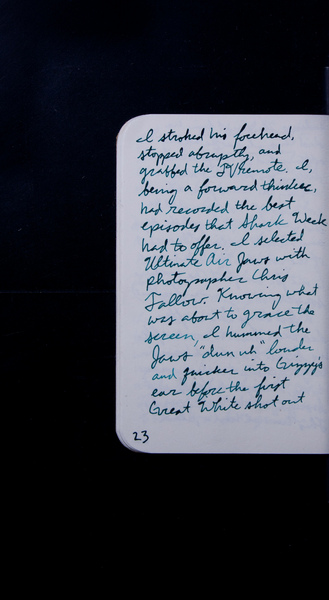 I stroked his forehead,
stopped abruptly, and
grabbed the TV remote. I,
being a forward thinker,
had recorded the best
episodes that Shark Week
had to offer. I selected
Ultimate Air Jaws with
photographer Chris
Fallow. Knowing what
was about to grace the
screen, I hummed the
Jaws "dun uh" louder
and quicker into Gizzy's
ear before the first
Great White shot out
23